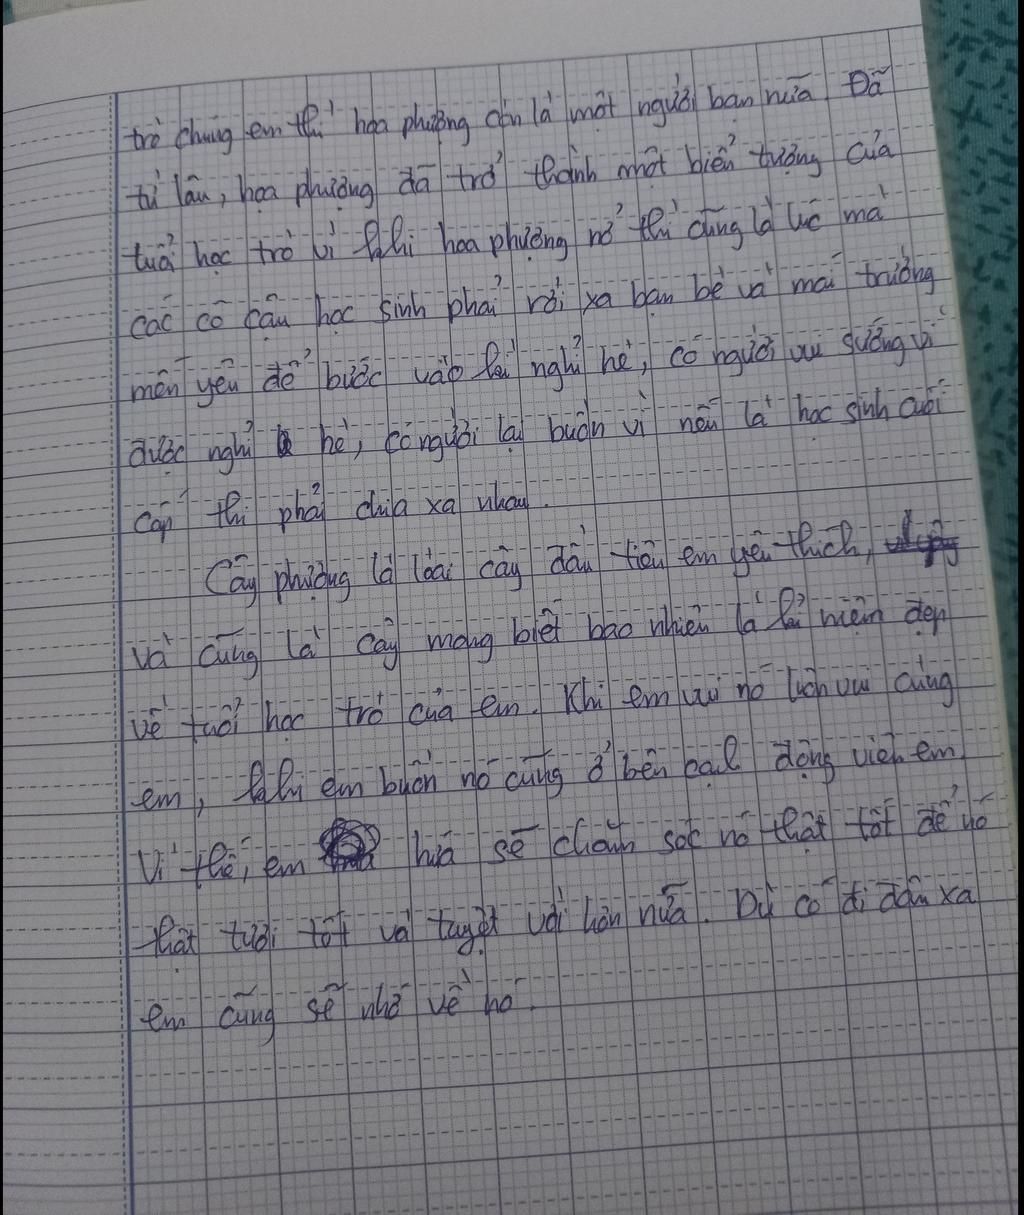 trò chúng em thì hoa phượng còn là một người bạn nữa. Đã
từ lâu, hoa phượng đã trở thành một biểu tượng của
tuổi học trò vì khi hoa phượng nở thì cũng là lúc mà
các cô cậu học sinh phải rời xa bạn bè và mái trường
mến yêu để bước vào kì nghỉ hè, có người vui sướng vì
được nghỉ hè, có người lại buồn vì nếu là học sinh cuối
cấp thì phải chia xa nhau.
Cây phượng là loài cây đầu tiên em yêu thích,
và cũng là cây mang biết bao nhiêu là kỉ niệm đẹp
về tuổi học trò của em. Khi em vui nó luôn vui cùng
em, khi em buồn nó cũng ở bên cạnh động viên em.
Vì thế, em hứa sẽ chăm sóc nó thật tốt để nó
thật tươi tốt và tuyệt vời hơn nữa. Dù có đi đâu xa
em cũng sẽ nhớ về nó.